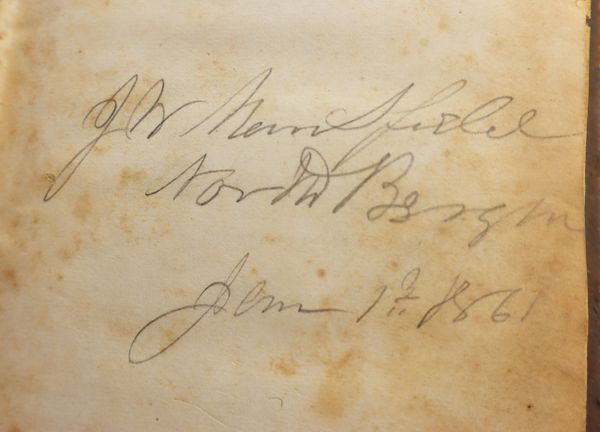 J W Mansfield
North Bergen
Jan 1st 1861